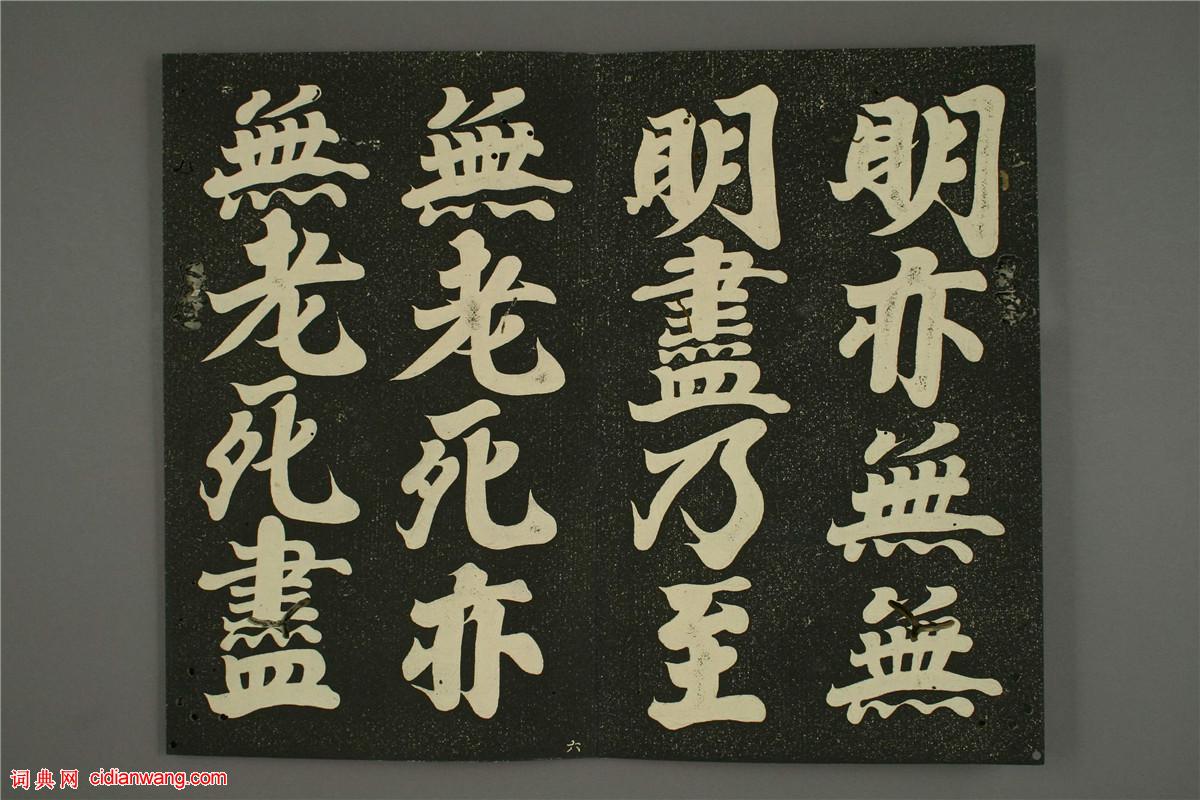 明亦無無
明盡乃至
無老死亦
無老死盡
六
词典网 cidianwang.com